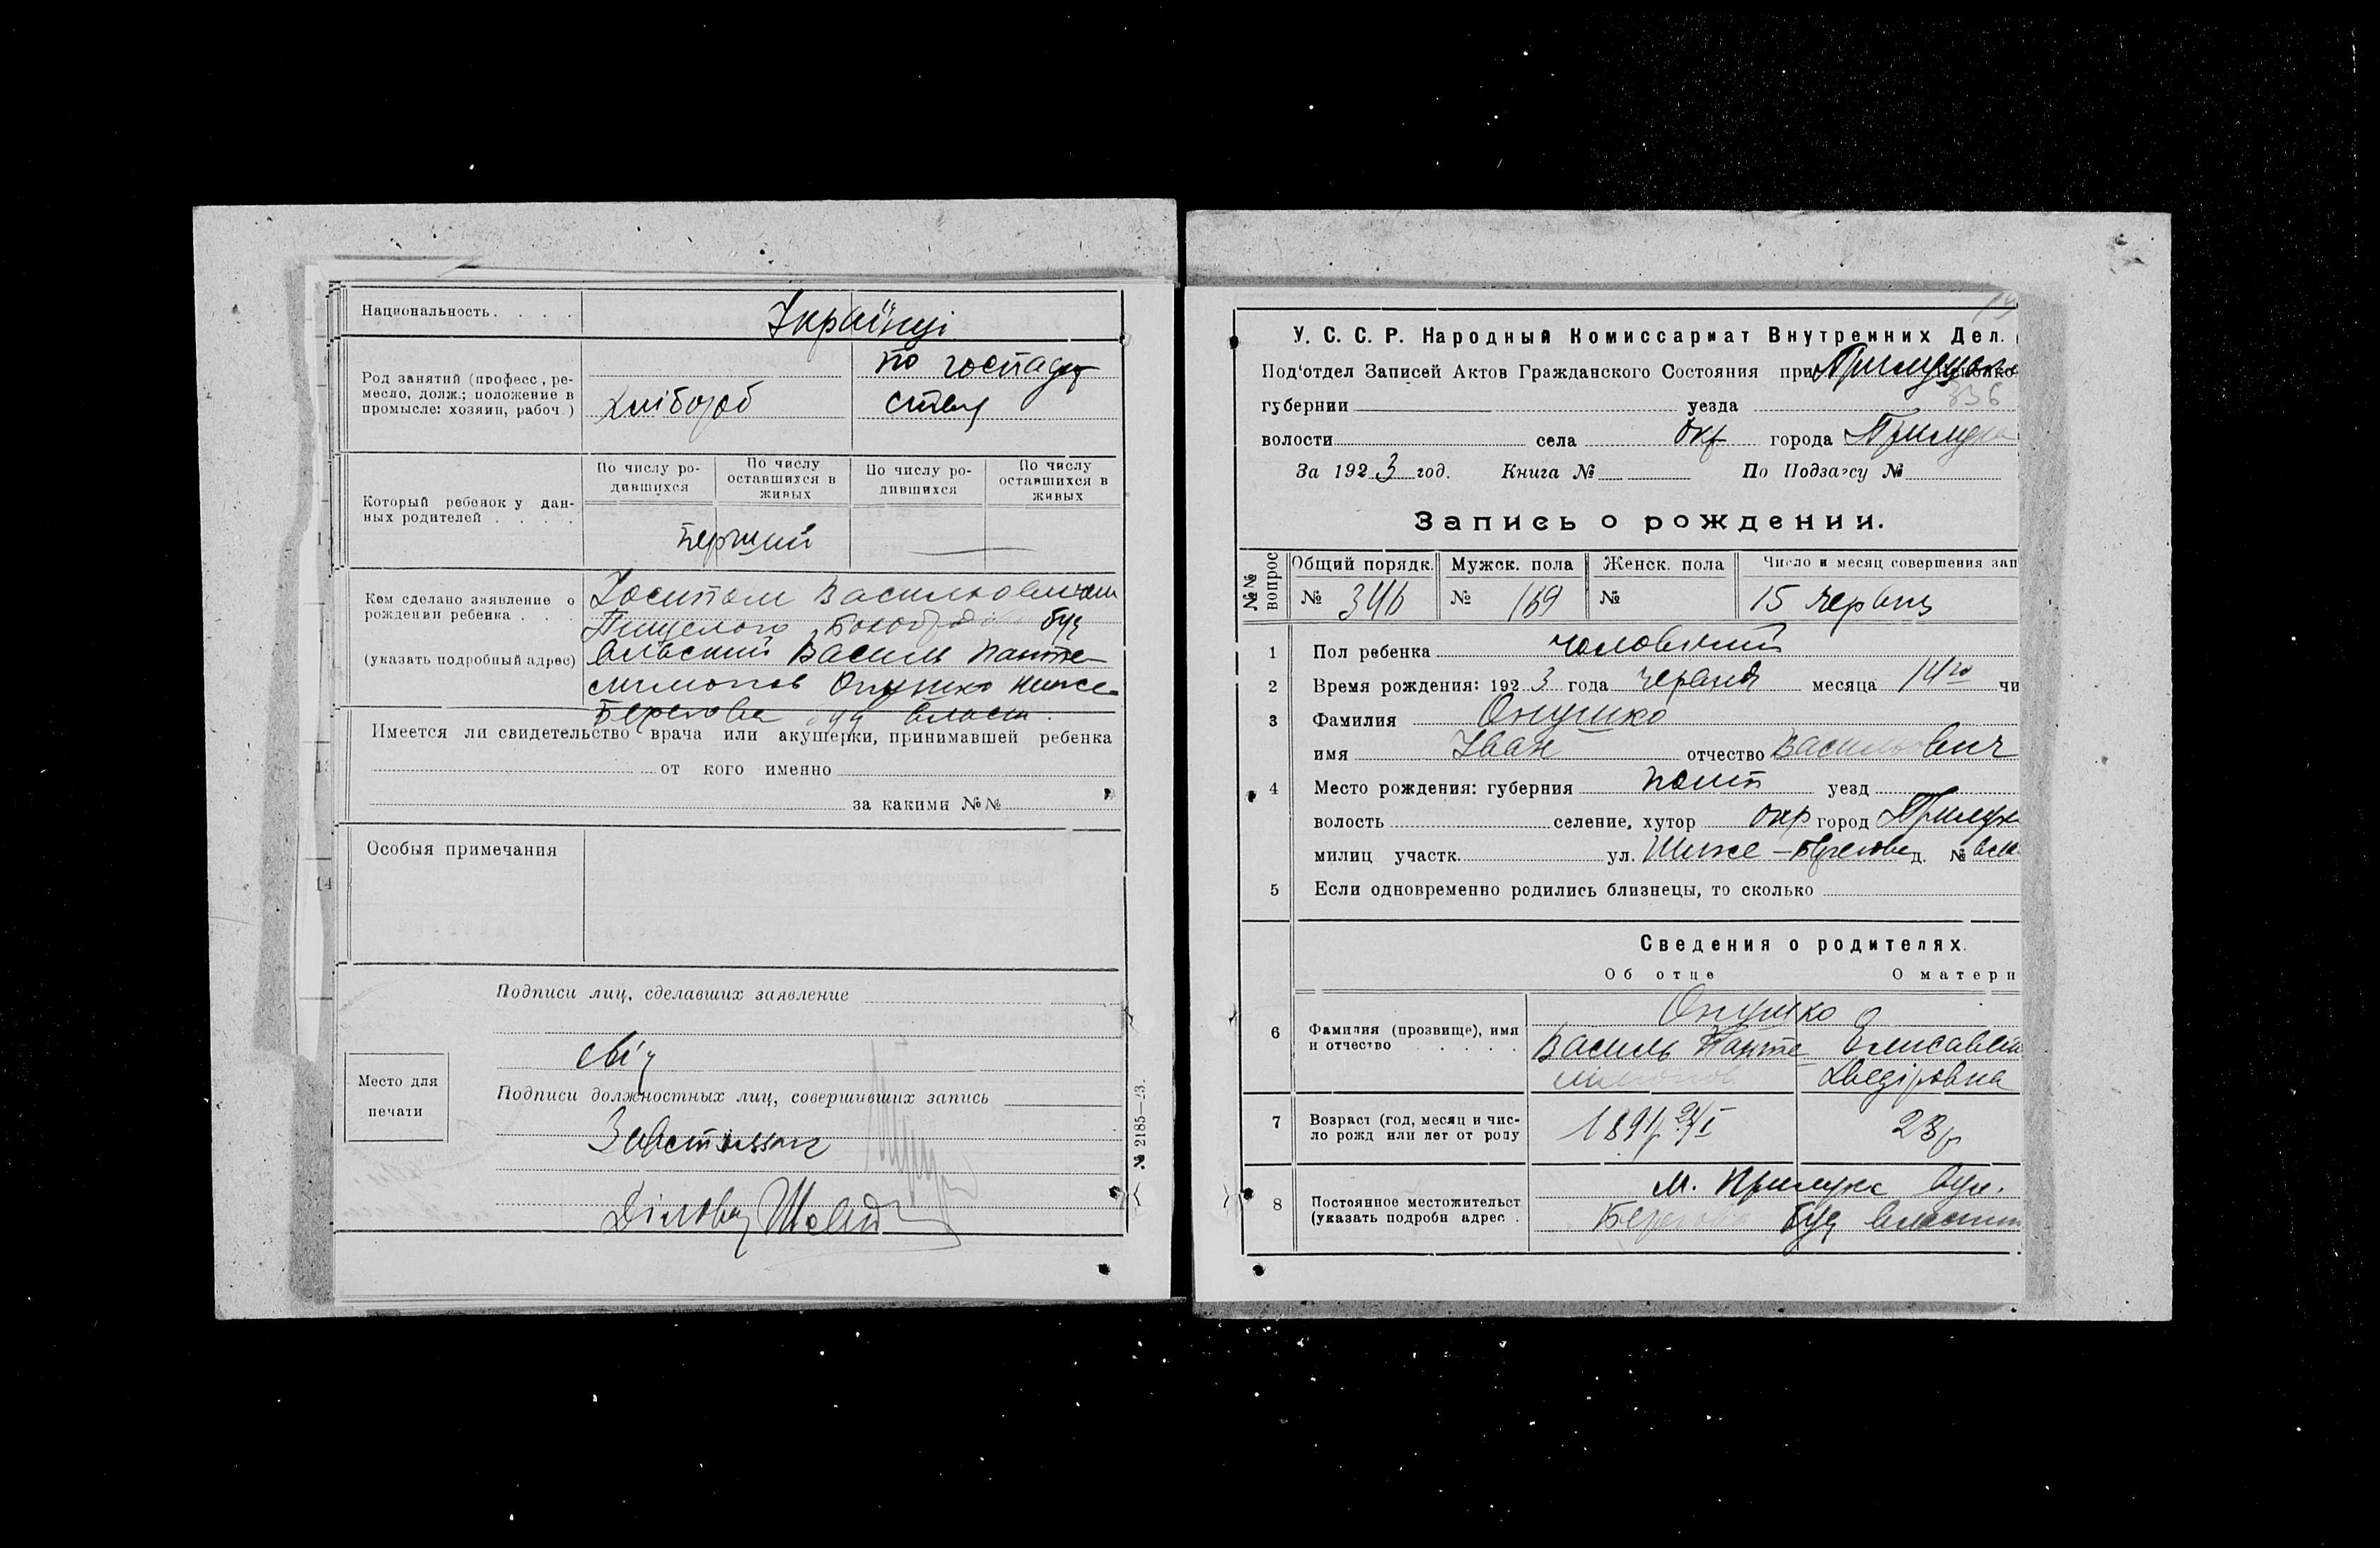 Национальность. . . . Українці
Род занятий (професс, ре-
месло, долж.; положение в
промысле: хозяин, рабоч.)
Хлібороб
по господар
ству
Который ребенок у дан-
ных родителей . . . .
По числу ро-
дившихся
По числу
оставшихся в
живых
По числу ро-
дившихся
По числу
оставшихся в
живых
перший
Кем сделано заявление о
рождении ребенка . . .
(указать подробный адрес)
Васильовичем
буд
Василь Панте-
Онушко Ниже-
Берегова буд власн.
Имеется ли свидетельство врача или акушерки, принимавшей ребенка
от кого именно
за какими №№
Особыя примечания
Подписи лиц, сделавших заявление
Место для
печати
Подписи должностных лиц, совершивших запись
Завстолом
Діловод
№ 2185—23.
У. С. С. Р. Народный Комиссариат Внутренних Дел.
Под'отдел Записей Актов Гражданского Состояния при
губернии уезда 836
волости села окр города Прилука
За 1923 год. Книга № По Подзагсу №
Запись о рождении.
№№
вопрос
Общий порядк.
Мужск. пола
Женск. пола
Число и месяц совершения зап
№ 346 № 169 № 15 червня
1 Пол ребенка чоловічий
2 Время рождения: 1923 года червня месяца 14го чи
3 Фамилия Онушко
имя Іван отчество Васильович
4 Место рождения: губерния Полт уезд
волость селение, хутор окр город Прилук
милиц участк. ул. Ниже-Берегова д. № влас
5 Если одновременно родились близнецы, то сколько
Сведения о родителях.
Об отце О матери
6 Фамилия (прозвище), имя
и отчество . . . . .
Онушко
Василь Панте
Елисавета
7 Возраст (год, месяц и чис-
ло рожд или лет от роду
23 р
8 Постоянное местожительст
(указать подробн адрес .
м. Прилука вул.
Берегова буд власний